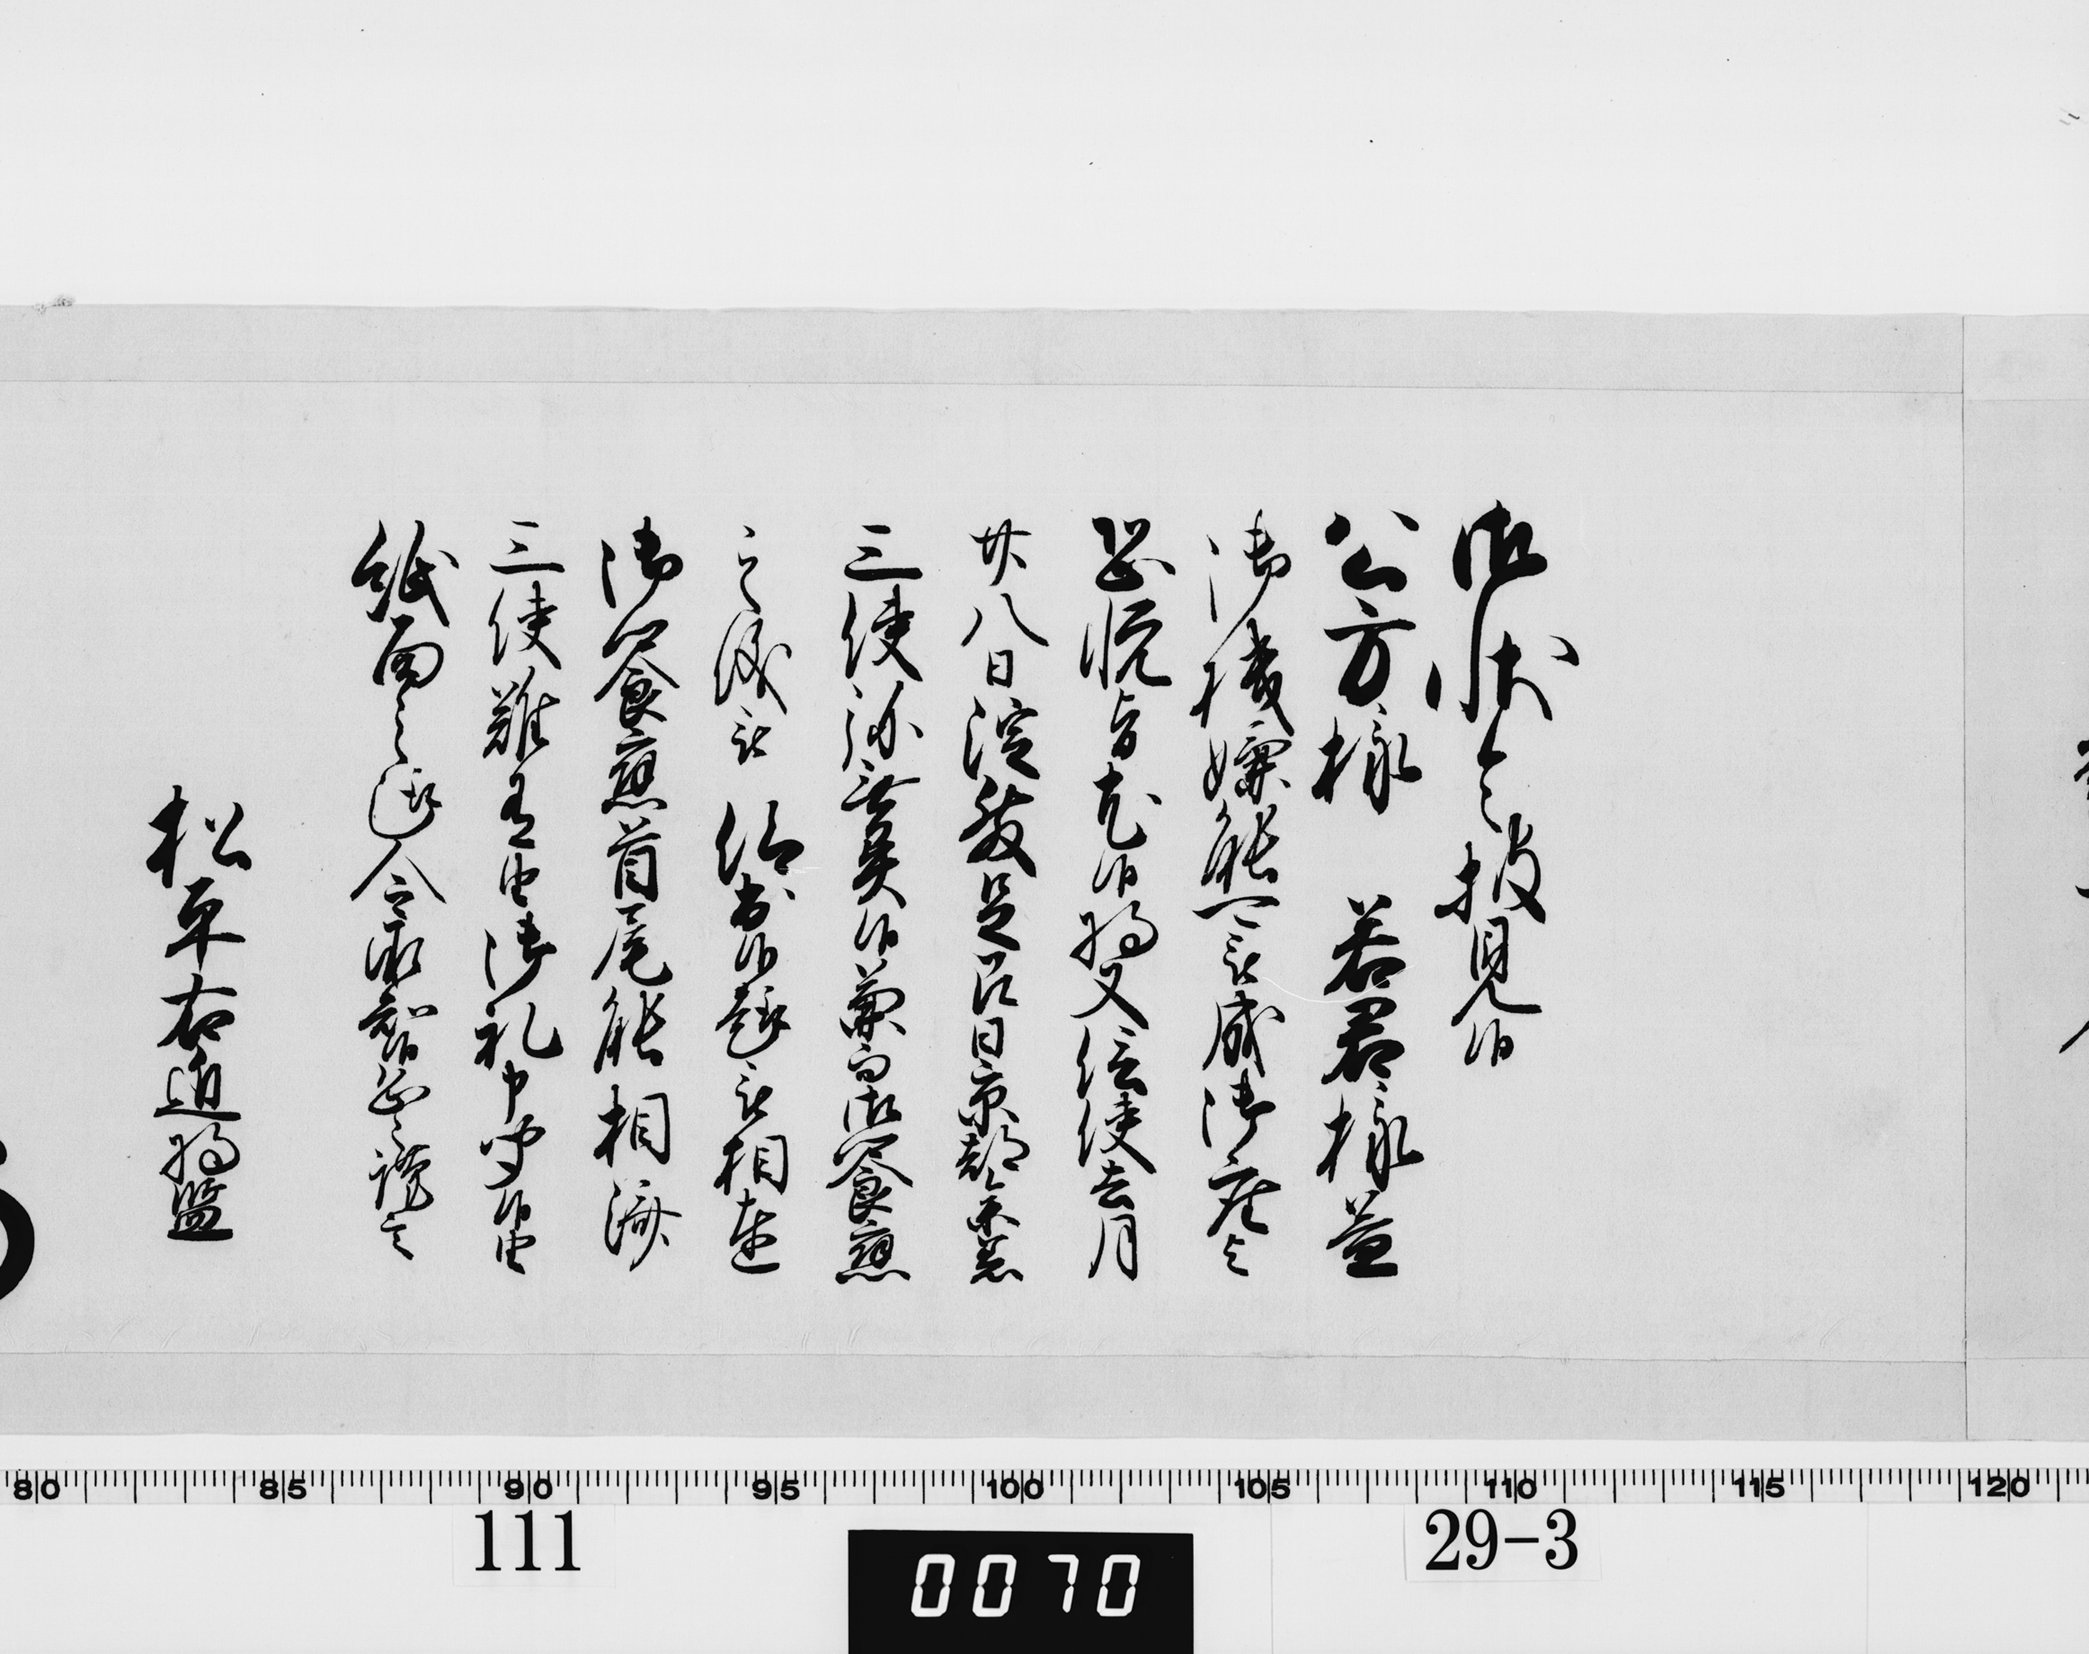 御状令披見候
公方様 若君様益
御機嫌能被成御座之
恐悦旨尤候将又信使去月
廿八日淀發足即日京都参着
三使弥無異候兼而御饗應
之儀被 仰出候趣被相達
御饗應首尾能相濟
三使難有由御礼申聞候由
紙面之趣令承知候恐々謹言
松平右近将監
80 85 90 95 100 105 110 115 120
111
0070
29-3